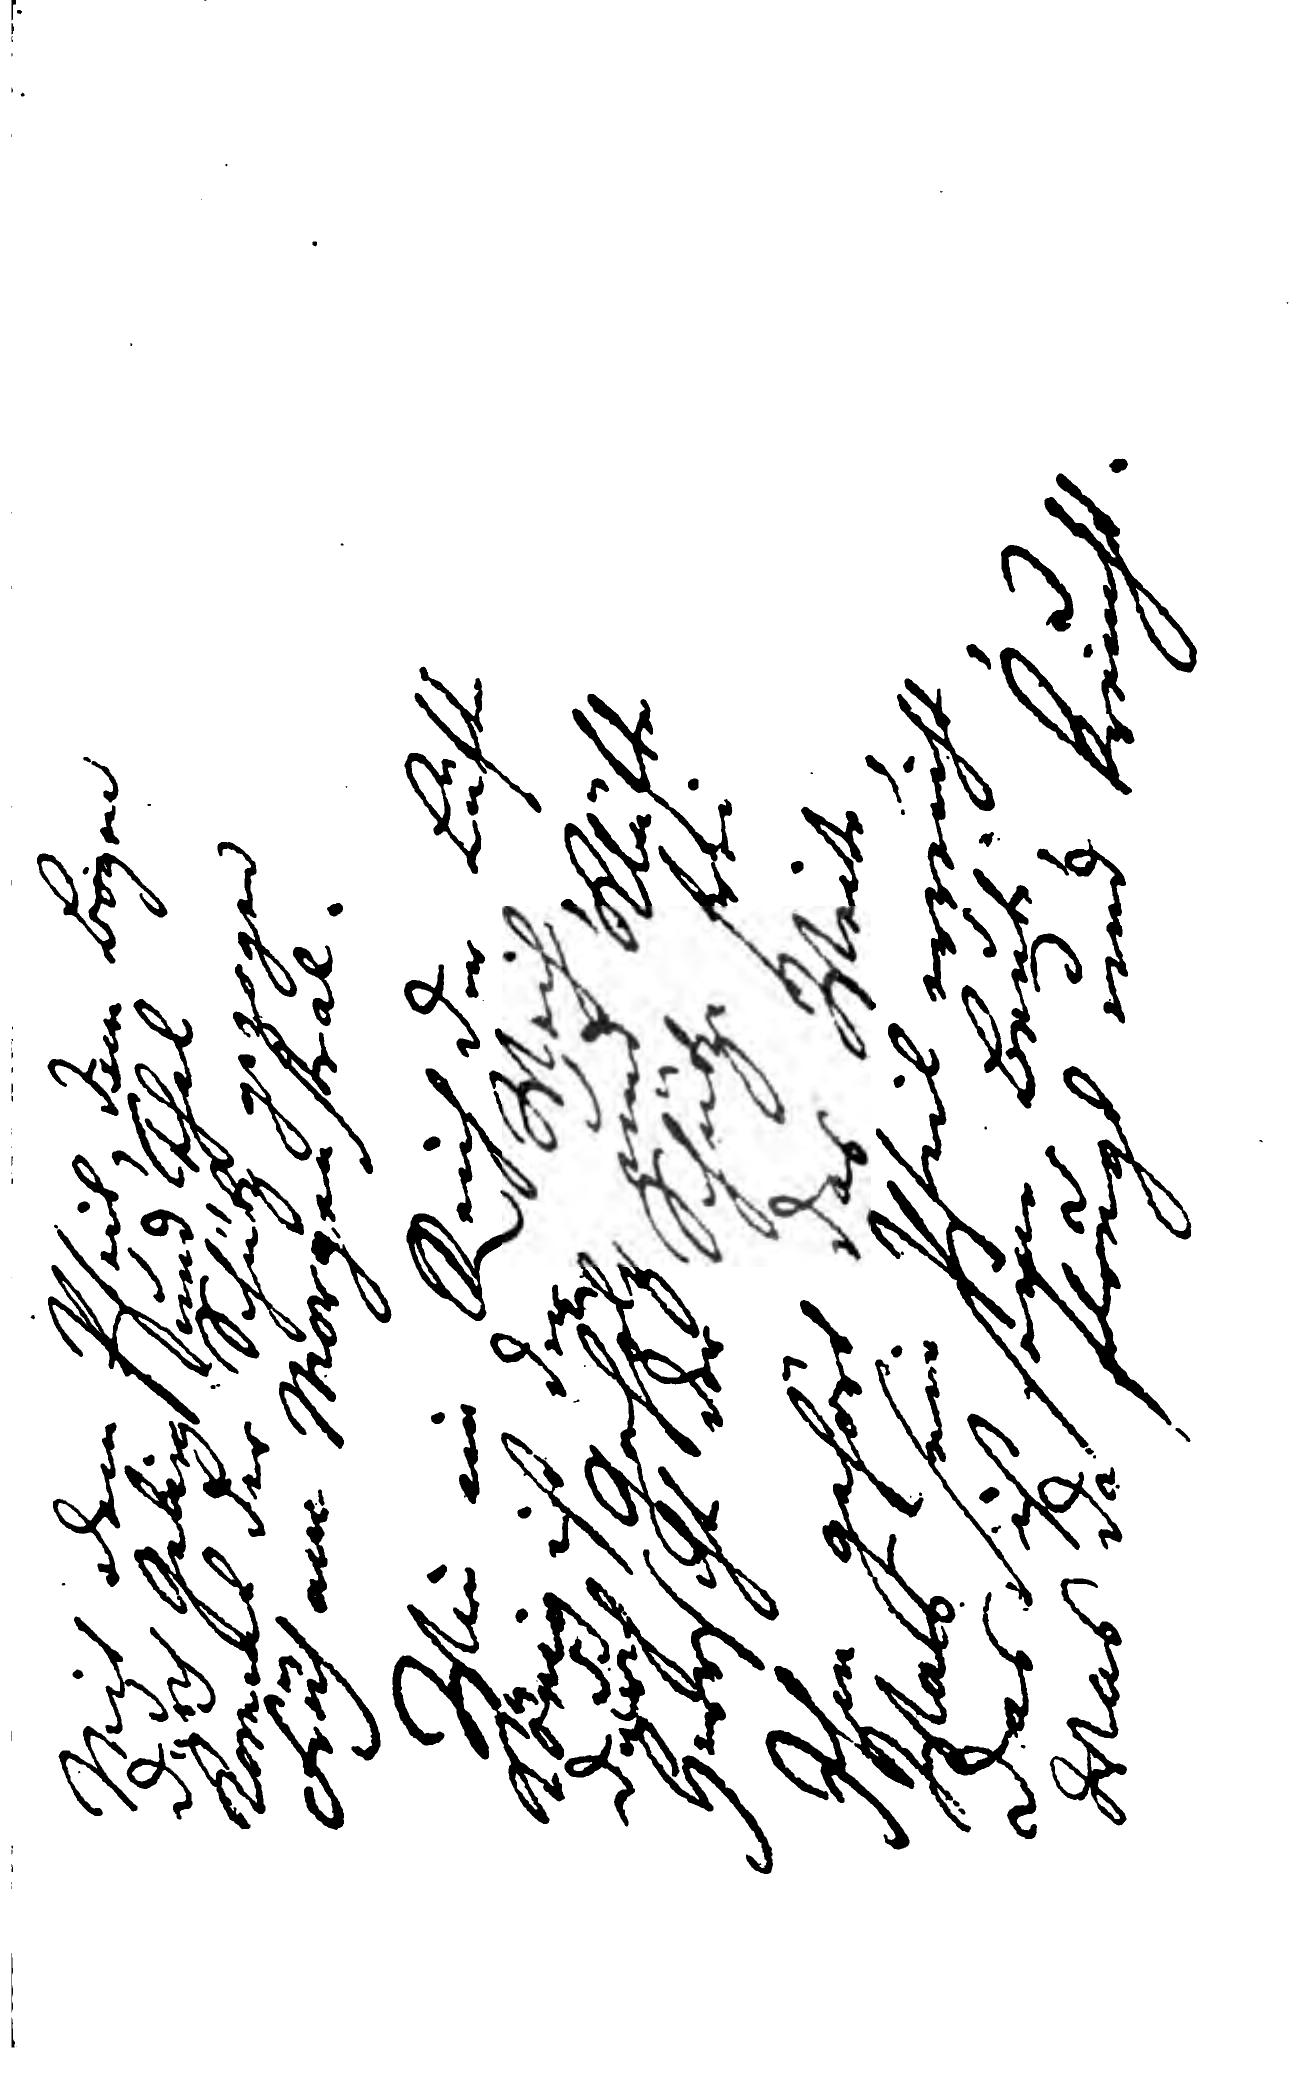 Mit dem Pfeil, dem Bogen
Durch Gebirg und Thal
Kommt der Schütz gezogen
Früh am Morgenstrahl.
Wie im Reich der Lüfte
König ist der Weih,
Durch Gebirg und Klüfte
Herrscht der Schütze frei.
Ihm gehört das Weite
Was sein Pfeil erreicht,
Das ist seine Beute,
Was da fleugt und kreucht.